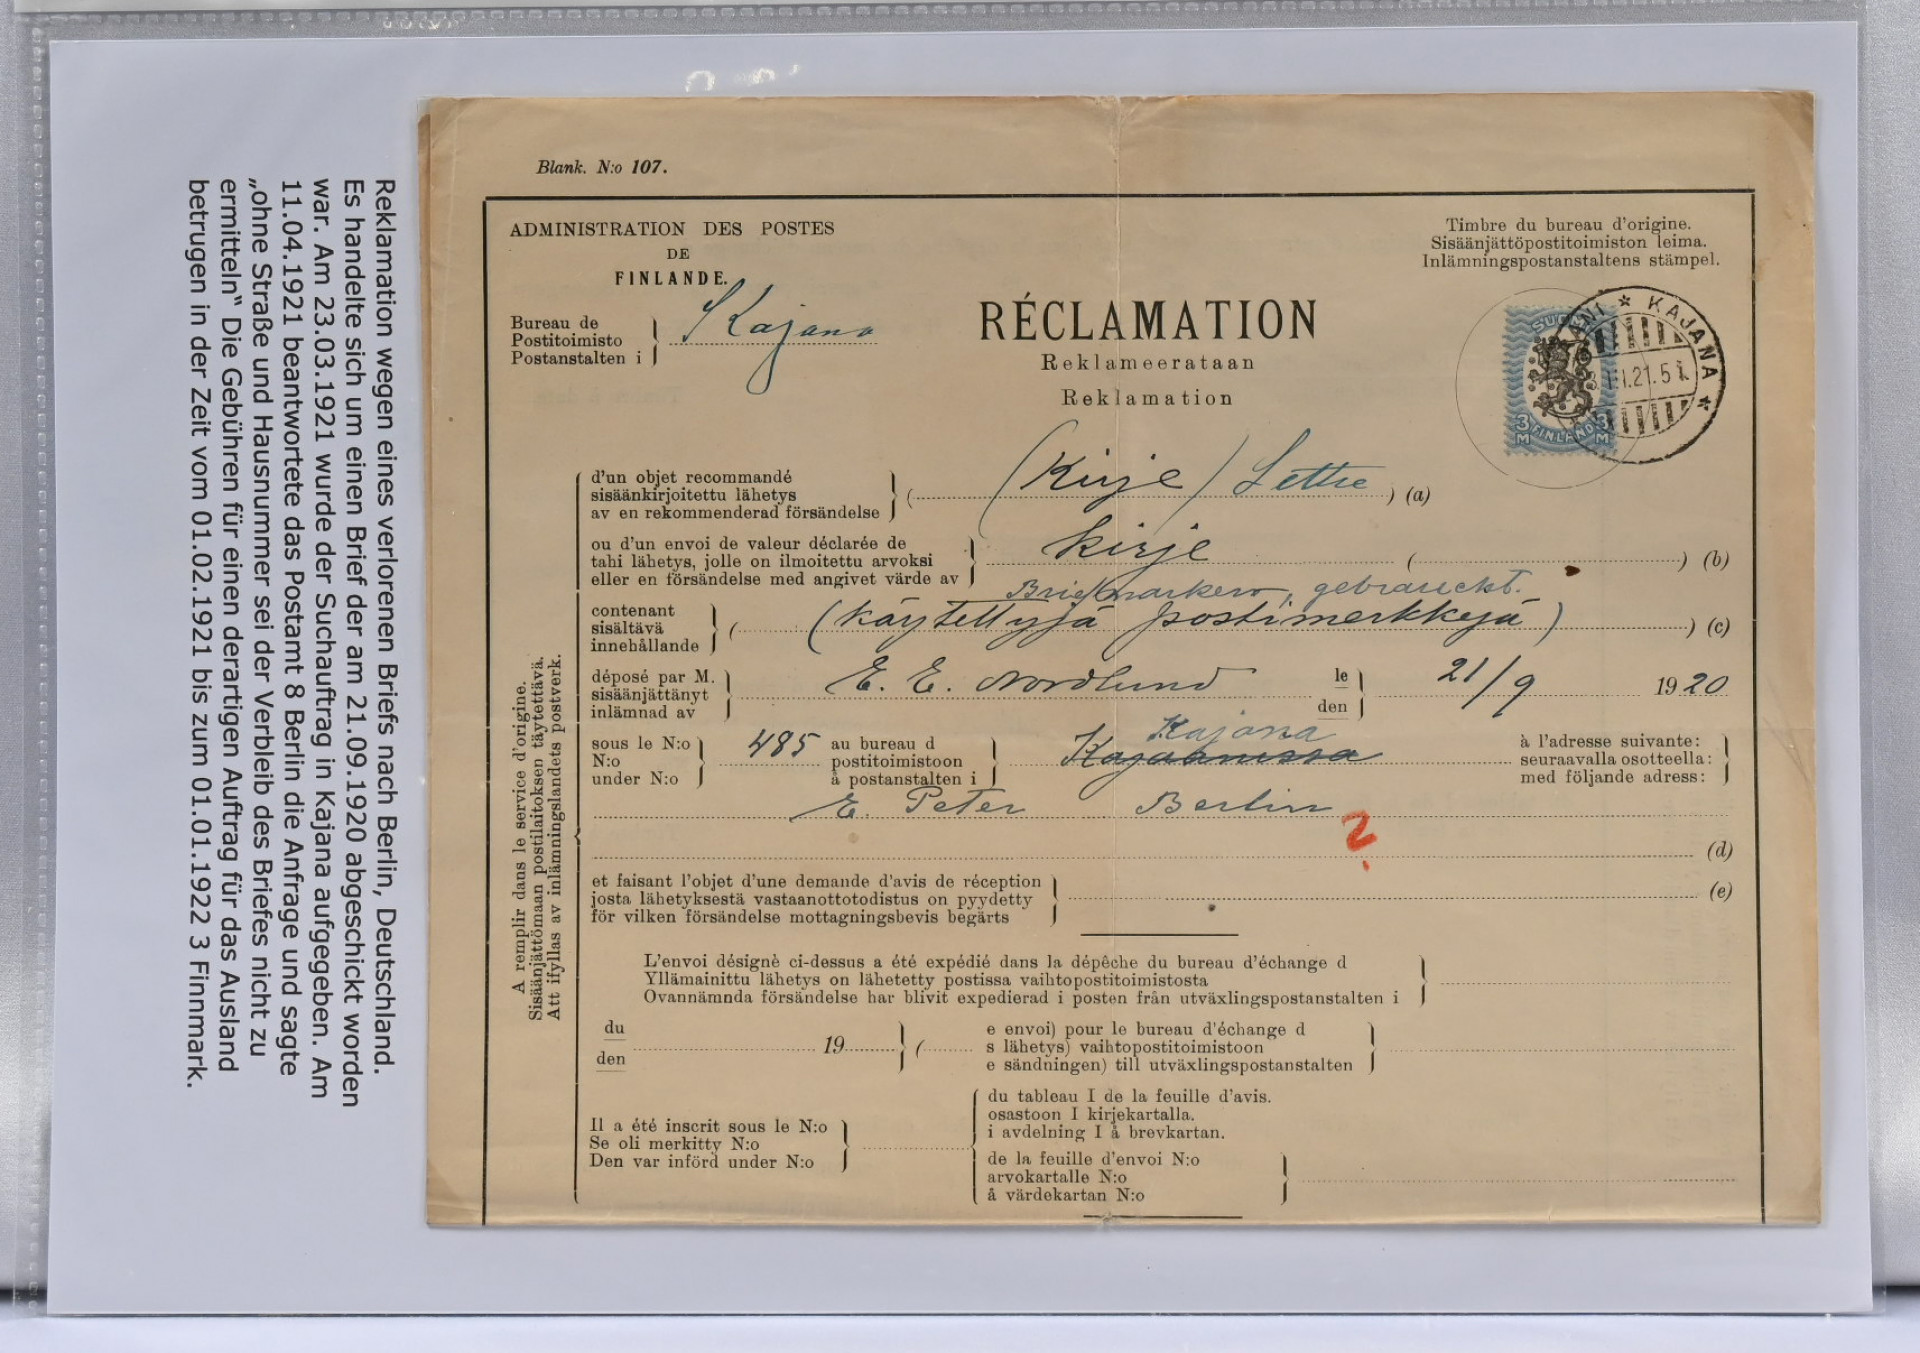 Reklamation wegen eines verlorenen Briefs nach Berlin, Deutschland.
Es handelte sich um einen Brief der am 21.09.1920 abgeschickt worden
war. Am 23.03.1921 wurde der Suchauftrag in Kajana aufgegeben. Am
11.04.1921 beantwortete das Postamt 8 Berlin die Anfrage und sagte
„ohne Straße und Hausnummer sei der Verbleib des Briefes nicht zu
ermitteln“ Die Gebühren für einen derartigen Auftrag für das Ausland
betrugen in der Zeit vom 01.02.1921 bis zum 01.01.1922 3 Finnmark.
Blank. N:o 107.
ADMINISTRATION DES POSTES
DE
FINLANDE.
Timbre du bureau d'origine.
Sisäänjättöpostitoimiston leima.
Inlämningspostanstaltens stämpel.
Bureau de
Postitoimisto
Postanstalten i
Kajana
RÉCLAMATION
Reklameerataan
Reklamation
SUOMI
3 M FINLAND 3 M
KAJANA
21.5
d'un objet recommandé
sisäänkirjoitettu lähetys
av en rekommenderad försändelse
( (Kirje) Lettre ) (a)
ou d'un envoi de valeur déclarée de
tahi lähetys, jolle on ilmoitettu arvoksi
eller en försändelse med angivet värde av
kirje ( ) (b)
Briefmarken, gebraucht.
contenant
sisältävä
innehållande
( (käytettyjä postimerkkejä) ) (c)
déposé par M.
sisäänjättänyt
inlämnad av
E. E. Nordlund
le
den
21/9 1920
sous le N:o
N:o
under N:o
485
au bureau d
postitoimistoon
å postanstalten i
Kajana
Kajaanissa
à l'adresse suivante:
seuraavalla osotteella:
med följande adress:
E. Peter Berlin
?
(d)
et faisant l'objet d'une demande d'avis de réception
josta lähetyksestä vastaanottotodistus on pyydetty
för vilken försändelse mottagningsbevis begärts
(e)
L'envoi désigné ci-dessus a été expédié dans la dépêche du bureau d'échange d
Yllämainittu lähetys on lähetetty postissa vaihtopostitoimistosta
Ovannämnda försändelse har blivit expedierad i posten från utväxlingspostanstalten i
du
den
19
(
e envoi) pour le bureau d'échange d
s lähetys) vaihtopostitoimistoon
e sändningen) till utväxlingspostanstalten
Il a été inscrit sous le N:o
Se oli merkitty N:o
Den var införd under N:o
du tableau I de la feuille d'avis.
osastoon I kirjekartalla.
i avdelning I å brevkartan.
de la feuille d'envoi N:o
arvokartalle N:o
å värdekartan N:o
A remplir dans le service d'origine.
Sisäänjättömaan postilaitoksen täytettävä.
Att ifyllas av inlämningslandets postverk.